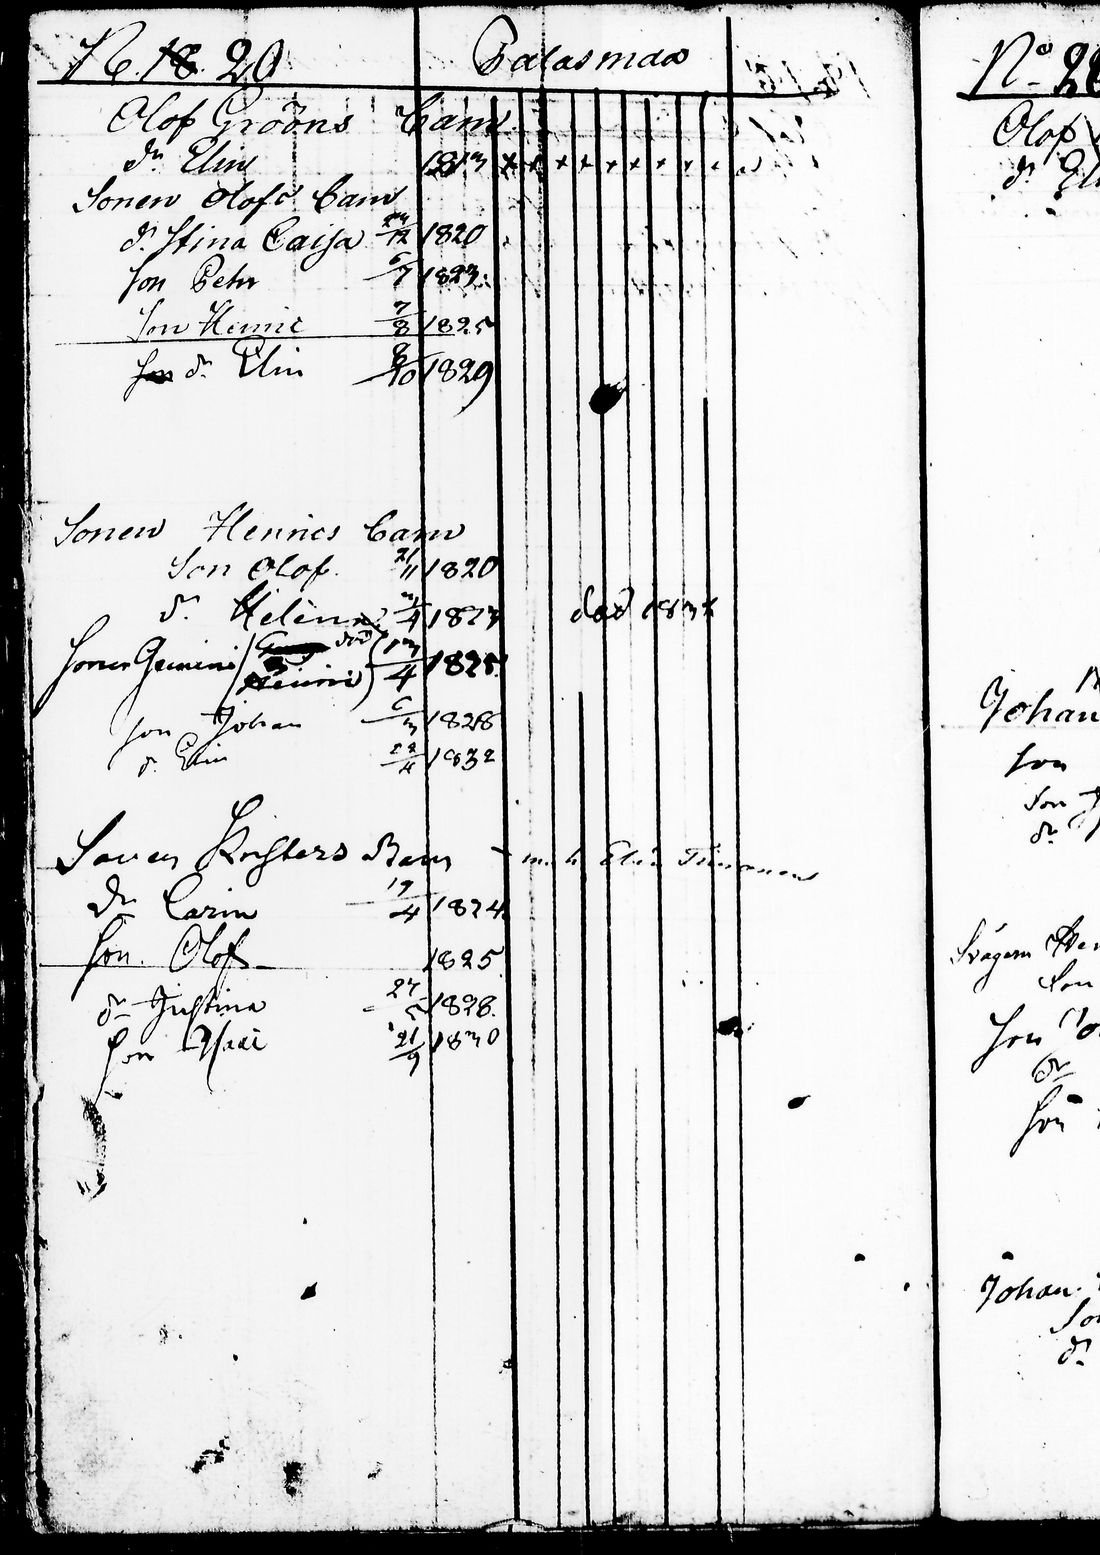 N. 18. 20 Palasmaa
Olof Groöns Barn
dr. Elin 1813 x x x x x x x x
Sonen Olofs Barn
dr. Stina Caisa 24/12 1820
Son Pehr 6/7 1823.
Son Henric 7/8 1825
Son dr. Elin 8/10 1829
Sonen Henrics Barn
Son Olof. 21/11 1820
dr. Helena 3/4 1823 död 183
Henric 13/4 1825.
Son Johan 6/3 1828
dr. Elin 22/4 1832
Sonen Kristers Barn m. h. Elin
dr Carin 17/4 1824
Son. Olof 1825
dr Justina 27/5 1828.
Son Isac 21/9 1830
No 20
Olof
dr. Eli
Johan
Son
Son
dr.
Svågern
Son
Son
dr
Son
Johan.
So
dr.